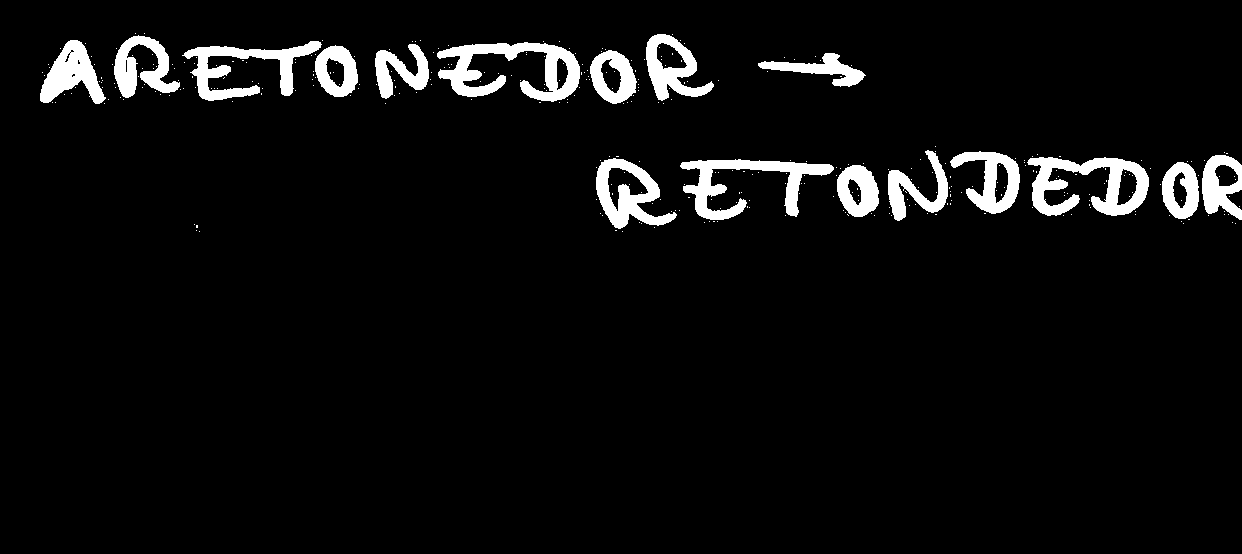 ARETONEDOR →
RETONDEDOR